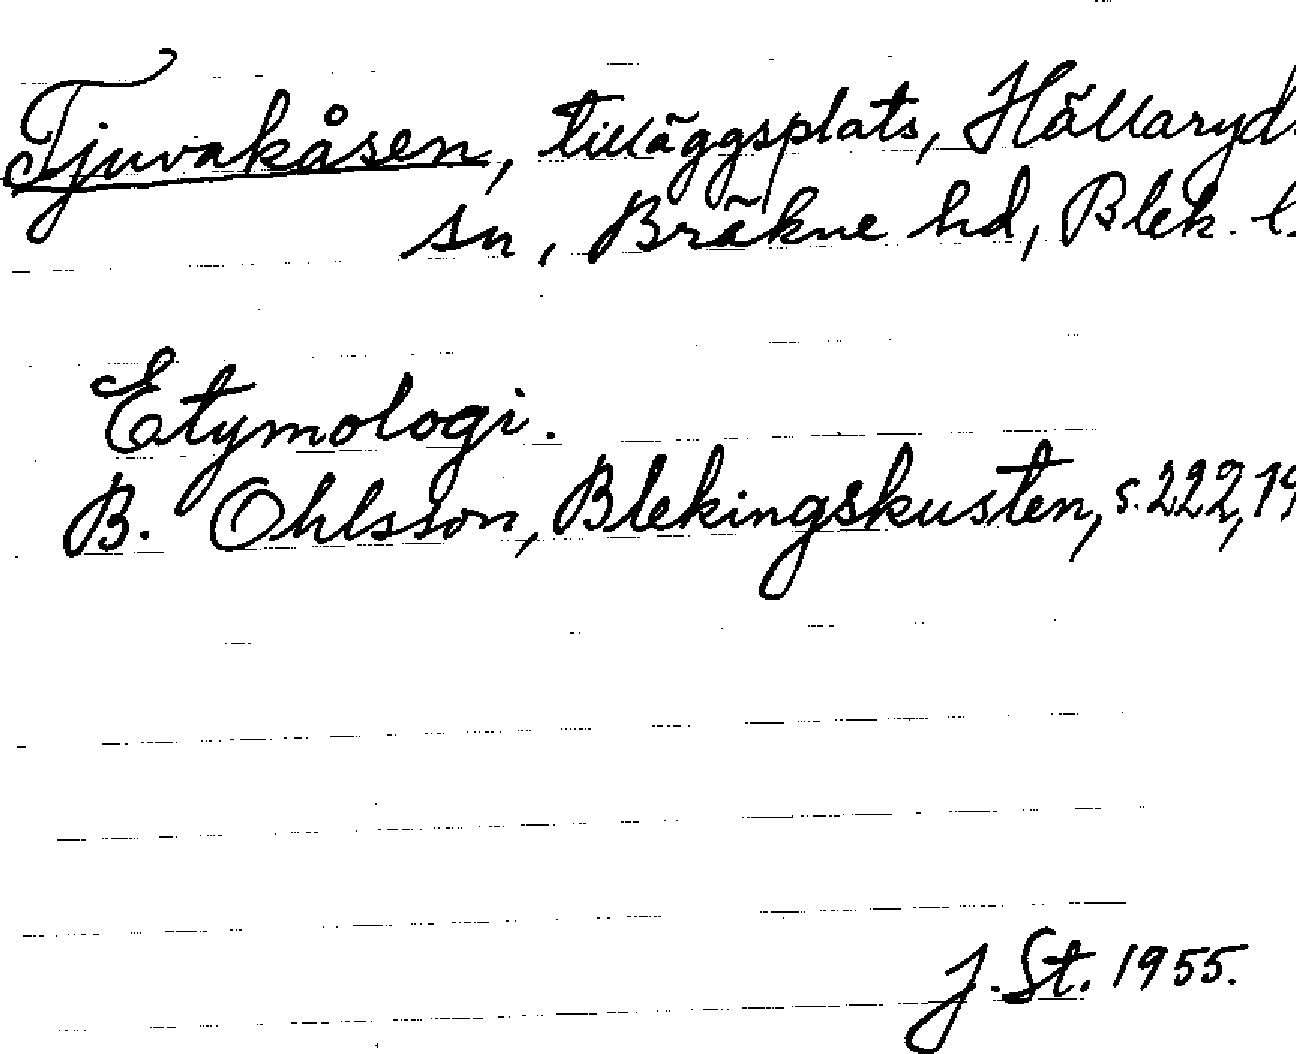 Tjuvakåsen, tilläggsplats, Hällaryds
sn, Bräkne hd, Blek. l.
Etymologi.
B. Ohlsson, Blekingskusten, s. 222, 19
J. St. 1955.